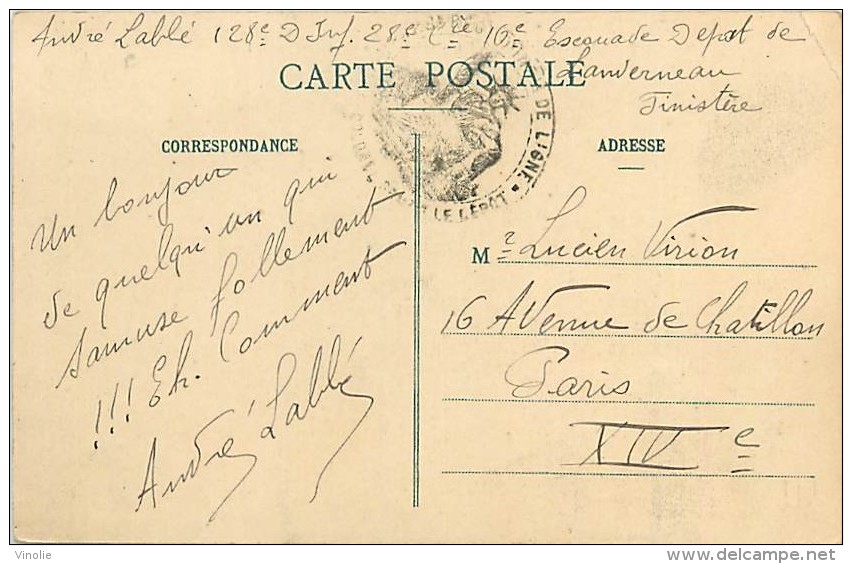 André Lablé 128e D Inf. 28e Cie 16e Escouade Depot de
Landerneau
Finistère
CARTE POSTALE
DE LIGNE
LE DÉPOT
CORRESPONDANCE
ADRESSE
Un bonjour
de quelqu'un qui
s'amuse follement
!!! Eh. Comment
André Lablé
Mr Lucien Virion
16 Avenue de Chatillon
Paris
XIVe
© Vinolie
http://www.delcampe.net